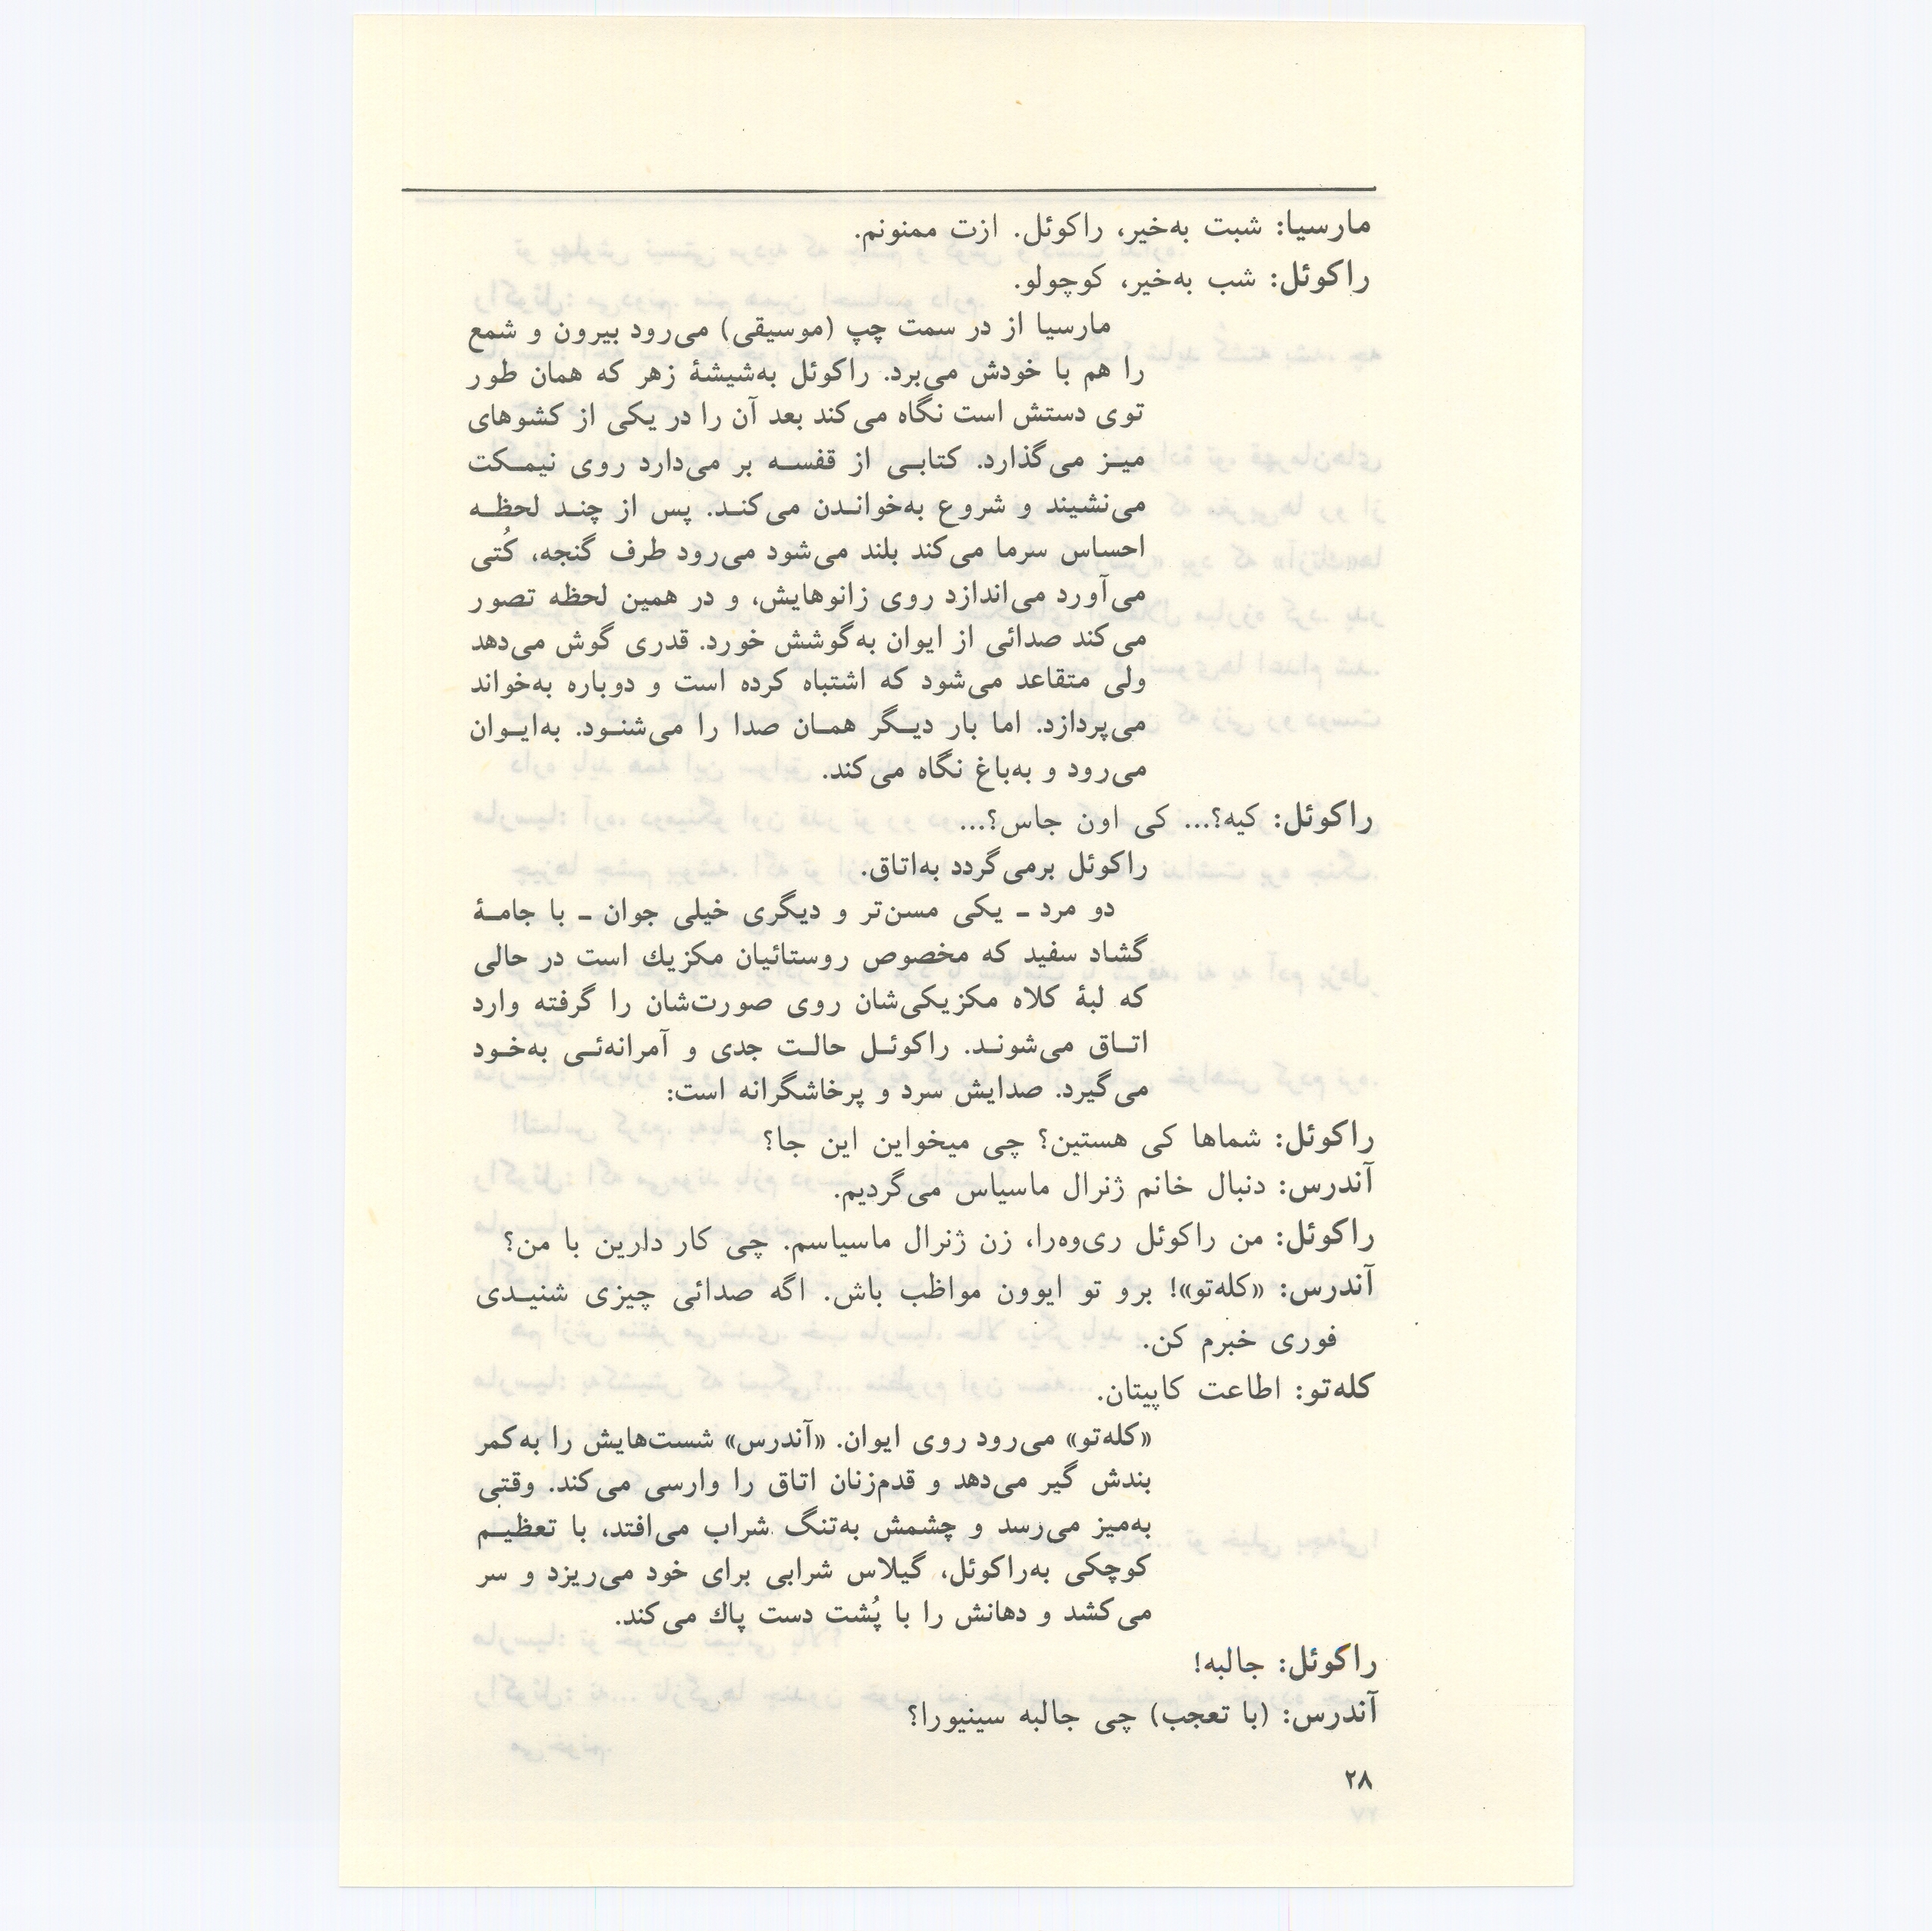 مارسیا: شبت به‌خیر، راکوئل. ازت ممنونم.
راکوئل: شب به‌خیر، کوچولو.
مارسیا از در سمت چپ (موسیقی) می‌رود بیرون و شمع
را هم با خودش می‌برد. راکوئل به‌شیشهٔ زهر که همان طور
توی دستش است نگاه می‌کند بعد آن را در یکی از کشوهای
میـز می‌گذارد. کتابـی از قفسـه بر می‌دارد روی نیمـکت
می‌نشیند و شروع به‌خوانـدن می‌کنـد. پس از چنـد لحظـه
احساس سرما می‌کند بلند می‌شود می‌رود طرف گنجه، کُتی
می‌آورد می‌اندازد روی زانوهایش، و در همین لحظه تصور
می‌کند صدائی از ایوان به‌گوشش خورد. قدری گوش می‌دهد
ولی متقاعد می‌شود که اشتباه کرده است و دوباره به‌خواند
می‌پردازد. اما بار دیـگر همـان صدا را می‌شنـود. به‌ایـوان
می‌رود و به‌باغ نگاه می‌کند.
راکوئل: کیه؟... کی اون جاس؟...
راکوئل برمی‌گردد به‌اتاق.
دو مرد ـ یکی مسن‌تر و دیگری خیلی جوان ـ با جامـهٔ
گشاد سفید که مخصوص روستائیان مکزیك است در حالی
که لبهٔ کلاه مکزیکی‌شان روی صورت‌شان را گرفته وارد
اتـاق می‌شونـد. راکوئـل حالـت جدی و آمرانه‌ئـی به‌خـود
می‌گیرد. صدایش سرد و پرخاشگرانه است:
راکوئل: شماها کی هستین؟ چی میخواین این جا؟
آندرس: دنبال خانم ژنرال ماسیاس می‌گردیم.
راکوئل: من راکوئل ری‌وه‌را، زن ژنرال ماسیاسم. چی کار دارین با من؟
آندرس: «کله‌تو»! برو تو ایوون مواظب باش. اگه صدائی چیزی شنیـدی
فوری خبرم کن.
کله‌تو: اطاعت کاپیتان.
«کله‌تو» می‌رود روی ایوان. «آندرس» شست‌هایش را به‌کمر
بندش گیر می‌دهد و قدم‌زنان اتاق را وارسی می‌کند. وقتی
به‌میز می‌رسد و چشمش به‌تنگ شراب می‌افتد، با تعظیـم
کوچکی به‌راکوئل، گیلاس شرابی برای خود می‌ریزد و سر
می‌کشد و دهانش را با پُشت دست پاك می‌کند.
راکوئل: جالبه!
آندرس: (با تعجب) چی جالبه سینیورا؟
۲۸